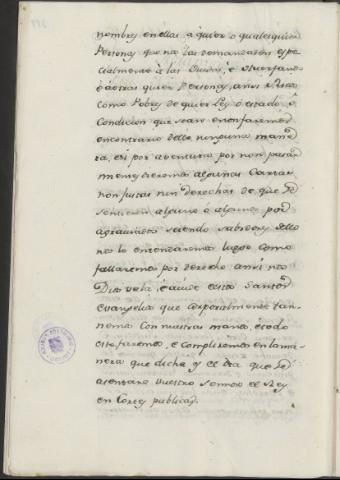 nombres en ellas a quier o qualesquier
Personas que nos las demandaren espe
cialmente á las Viudas, é Huerfanos
ó á otras quier Personas, ansi Ricas
como Pobres de quier Ley ó estado ó
Condicion que sean e non faremos
en contrario dello ninguna mane
ra, e si por aventura por non parar
mientes dieremos algunas Cartas
non justas nin derechas de que se
sentieren alguno ó algunos por
agraviados siendo sabidores dello
nos lo enmendaremos luego como
fallaremos por derecho ansi nos
Dios vala, é ayude estos Santos
evangelios que corporalmente tan
nemos con nuestras manos, é todo
esto faremos, e compliremos en la ma
nera que dicha es el dia que se
asentare nuestro Sennor el Rey
en Cortes publicas.